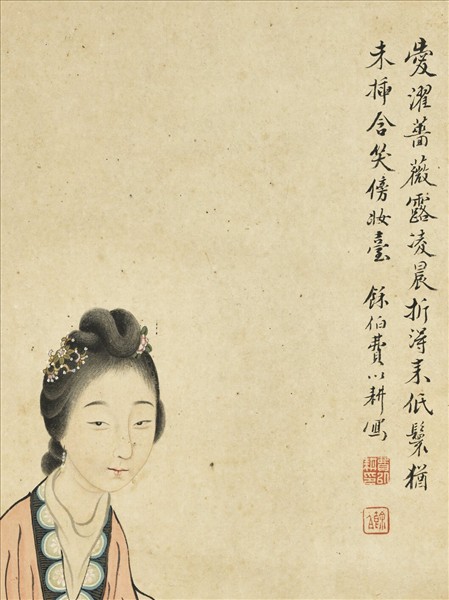 愛濯薔薇露凌晨折淂来低鬟猶
未插含笑傍妝臺 餘伯費以耕寫